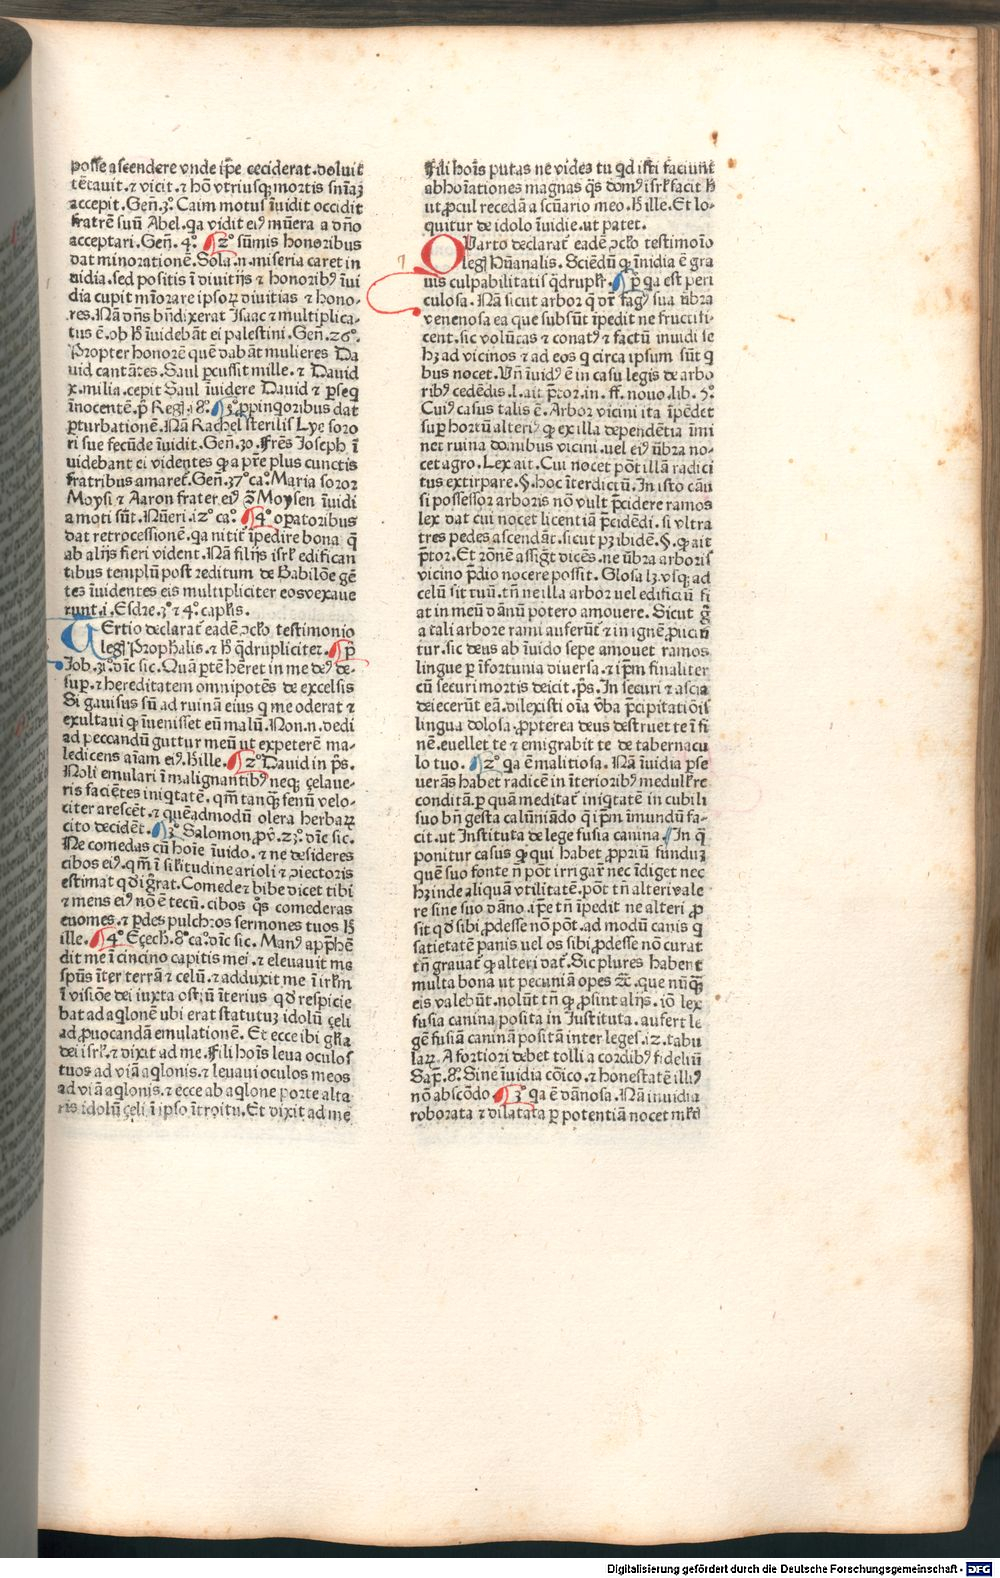 posse ascendere vnde ip̄e ceciderat. voluit
tētauit. ⁊ vicit. ⁊ hō vtriusqꝫ mortis snīaꝫ
accepit. Geń. 3°. Caim motus īuidit occidit
fratrē suū Abel. qa vidit eiꝰ mūera a dn̄o
acceptari. Geń. 4°. ¶ 2° sūmis honoribus
dat minorationē. Sola .n. miseria caret in
uidia. sed positis ī diuitijs ⁊ honoribꝰ īui
dia cupit mīorare ipsoꝝ diuitias ⁊ hono⸗
res. Nā dn̄s bn̄dixerat Isaac ⁊ multiplica⸗
tus ē. ob ħ īuidebāt ei palestini. Geń. 26°.
Propter honorē quē dabāt mulieres Da
uid cantātes. Saul ꝑcussit mille. ⁊ Dauid
x. milia. cepit Saul īuidere Dauid ⁊ ꝑseq
īnocentē. p̄ Regꝭ .i8°. ¶ 3° ꝓpinqoribus dat
ꝑturbationē. Nā Rachel sterilis Lye soro
ri sue fecūde īuidit. Geń. 30. Fr̄es Joseph ī
uidebant ei videntes ꝙ a pr̄e plus cunctis
fratribus amaret̉. Geń. 37° ca°. Maria soror
Moysi ⁊ Aaron frater eiꝰ ꝯ̄ Moysen īuidi
a moti sūt. Nūeri .i2° ca°. ¶ 4° oꝑatoribus
dat retrocessionē. qa nitit̉ īpedire bona q̄
ab alijs fieri vident. Nā filijs isrł edifican
tibus templū post reditum de Babilōe gē
tes īuidentes eis multipliciter eos vexaue
runt .i. Esdre. 3° ⁊ 4° caplis.
TErtio declarat̉ eadē ꝯcło testimonio
legꝭ Prophalis. ⁊ ħ qdrupliciter. ¶ p̄°
Job. 3i°. dīc sic. Quā ꝑtē hēret in me deꝰ de⸗
suꝑ. ⁊ hereditatem omnipotēs de excelsis
Si gauisus sū ad ruinā eius q me oderat ⁊
exultaui ꝙ īuenisset eū malū. Non .n. dedi
ad peccandū guttur meū ut expeterē ma⸗
ledicens aīam eiꝰ. H̄ ille. ¶ 2° Dauid in p̄s.
Noli emulari ī malignantibꝰ neqꝫ çelaue⸗
ris faciētes iniqtatē. qm̄ tanqꝫ fenū velo⸗
citer arescēt. ⁊ quēadmodū olera herbaꝝ
cito decidēt. ¶ 3° Salomon ꝓv̄. 23°. dīc sic.
Ne comedas cū hoīe īuido. ⁊ ne desideres
cibos eiꝰ. qm̄ ī siłitudine arioli ⁊ ꝯiectoris
estimat qđ igr̄at. Comede ⁊ bibe dicet tibi
⁊ mens eiꝰ nō ē tecū. cibos qs̄ comederas
euomes. ⁊ ꝑdes pulchros sermones tuos ħ
ille. ¶ 4° Eçech. 8° ca°. dīc sic. Manꝰ apprhē
dit me ī cincino capitis mei. ⁊ eleuauit me
spūs īter terrā ⁊ celū. ⁊ adduxit me ī irłm
ī visiōe dei iuxta ostiū īterius qđ respicie
bat ad aqlonē ubi erat statutuꝫ idolū çeli
ad ꝓuocandā emulationē. Et ecce ibi głia
dei isrł. ⁊ dixit ad me. Fili hoīs leua oculos
tuos ad viā aqlonis. ⁊ leuaui oculos meos
ad viā aqlonis. ⁊ ecce ab aqlone porte alta⸗
ris idolū çeli ī ipso ītroitu. Et dixit ad me
Fili hoīs putas ne vides tu qd isti faciunt
abhoīationes magnas qs̄ domꝰ isrł facit ħ
ut ꝓcul recedā a scūario meo. H̄ ille. Et lo⸗
quitur de idolo īuidie. ut patet.
QVarto declarat̉ eadē ꝯcło testimoīo
legꝭ Hūanalis. Sciēdū ꝙ īnidia ē gra
uis culpabilitatis qdrupłr. ¶ p̄° qa est peri
culosa. Nā sicut arbor q dr̄ fagꝰ sua ūbra
venenosa ea que subsūt īpedit ne fructifi⸗
cent. sic volūtas ⁊ conatꝰ ⁊ factū inuidi se
hꝫ ad vicinos ⁊ ad eos q circa ipsum sūt q
bus nocet. Vn̄ īuidꝰ ē in casu legis de arbo
ribꝰ cedēdis. l. ait p̄tor. in. ff. nouo. lib. 5°.
Cuiꝰ casus talis ē. Arbor vicini ita īpēdet
suꝑ hortū alteriꝰ ꝙ ex illa dependētia īmi
net ruina domibus vicini. uel eiꝰ ūbra no⸗
cet agro. Lex ait. Cui nocet pōt illā radici
tus extirpare. §. hoc īterdictū. In isto cāu
si possessor arboris nō vult p̄cidere ramos
lex dat cui nocet licentiā p̄cidēdi. si vltra
tres pedes ascendāt. sicut pꝫ ibidē. §. ꝙ ait
p̄tor. Et rōnē assigt dicēs. ne ūbra arboris
vicino p̄dio nocere possit. Glosa lꝫ vsqꝫ ad
celū sit tuū. tn̄ ne illa arbor uel edificiū fi
at in meū dānū potero amouere. Sicut ḡ
a tali arbore rami auferūt̉ ⁊ in ignē ꝓiciū
tur. sic deus ab īuido sepe amouet ramos
lingue ꝑ īfortunia diuersa. ⁊ ip̄m finaliter
cū securi mortis deicit. p̄s. In securi ⁊ ascia
deiecerūt eā. dilexisti oīa v̄ba p̄cipitatiōis
lingua dolosa. ꝓpterea deus destruet te ī fi
nē. euellet te ⁊ emigrabit te de tabernacu
lo tuo. ¶ 2° qa ē malitiosa. Nā īuidia ꝑse
uerās habet radicē in īterioribꝰ medułł re
conditā. ꝑ quā meditat̉ iniqtatē in cubili
suo bn̄ gesta calūniādo q ip̄m īmundū fa⸗
cit. ut Instituta de lege fusia canina. ¶ In q̄
ponitur casus ꝙ qui habet ꝓpriū funduꝫ
quē suo fonte n̄ pōt irrigar̄ nec īdiget nec
hꝫ inde aliquā vtilitatē. pōt tn̄ alteri vale
re sine suo dāno. ip̄e tn̄ īpedit ne alteri ꝓ
sit qđ sibi ꝓdesse nō pōt. ad modū canis q
satietatē panis uel os sibi ꝓdesse nō curat
tn̄ grauat̉ ꝙ alteri dat̉. Sic plures habent
multa bona ut pecuniā opes ⁊c̄. que nūqꝫ
eis valebūt. nolūt tn̄ ꝙ ꝓsint alijs. iō lex
fusia canina posita in Instituta. aufert le
gē fusiā caninā positā inter leges .i2. tabu
laꝝ. A fortiori debet tolli a cordibꝰ fideliū
Sap̄. 8°. Sine īuidia cōico. ⁊ honestatē illiꝰ
nō abscōdo. ¶ 3° qa ē dānosa. Nā inuidia
roborata ⁊ dilatata ꝑ potentiā nocet młt̉
Digitalisierung gefördert durch die Deutsche Forschungsgemeinschaft - DFG